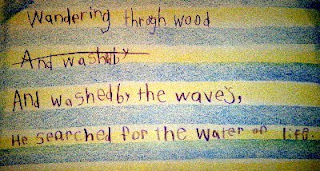 Wandering throgh wood
And washby
And washed by the waves,
He searched for the water of life.